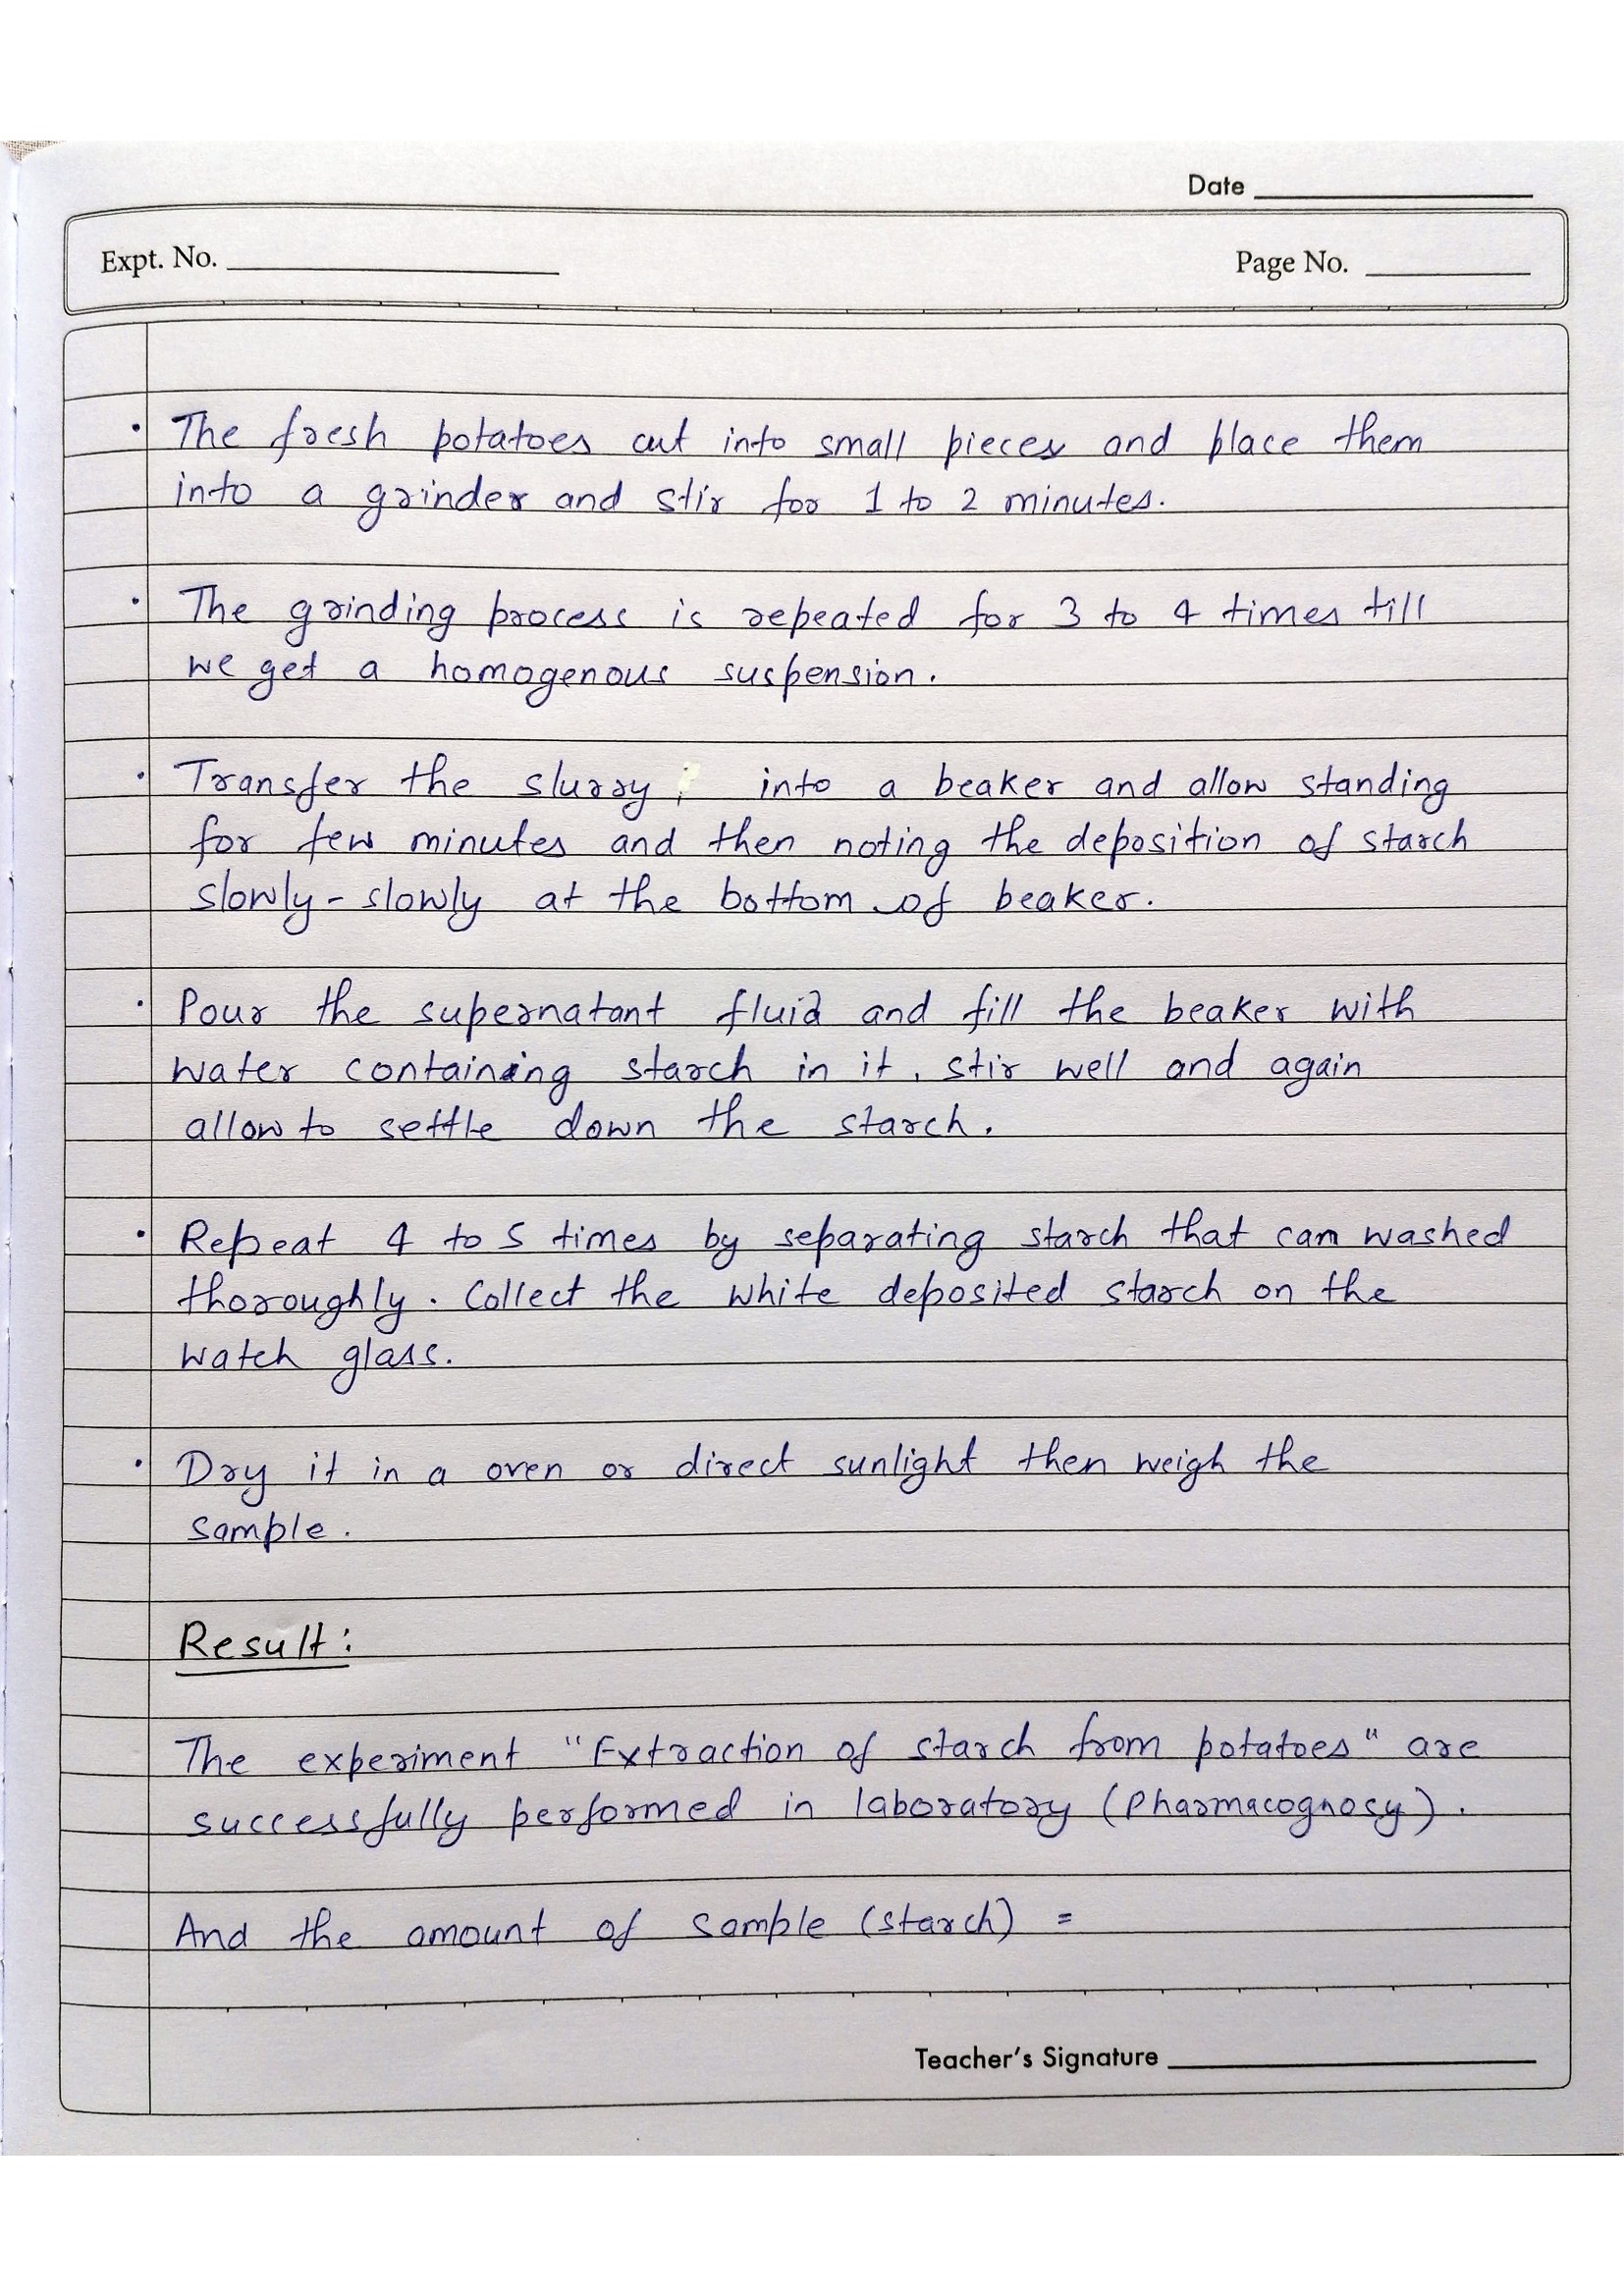 Date
Expt. No.
Page No.
• The fresh potatoes cut into small pieces and place them
into a grinder and stir for 1 to 2 minutes.
• The grinding process is repeated for 3 to 4 times till
we get a homogenous suspension.
• Transfer the slurry into a beaker and allow standing
for few minutes and then noting the deposition of starch
slowly-slowly at the bottom of beaker.
• Pour the supernatant fluid and fill the beaker with
water containing starch in it, stir well and again
allow to settle down the starch.
• Repeat 4 to 5 times by separating starch that can washed
thoroughly. Collect the white deposited starch on the
watch glass.
• Dry it in a oven or direct sunlight then weigh the
sample.
Result:
The experiment "Extraction of starch from potatoes" are
successfully performed in laboratory (Pharmacognosy).
And the amount of sample (starch) =
Teacher's Signature